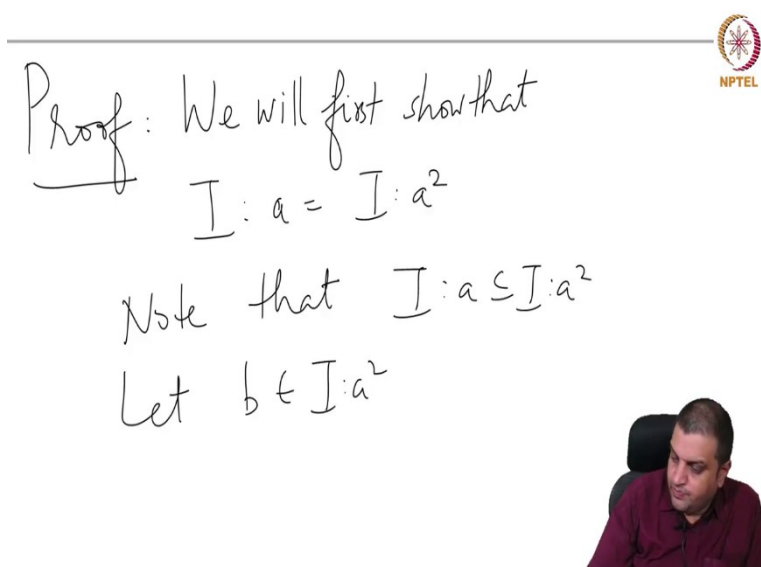 NPTEL
Proof: We will first show that
I : a = I : a²
Note that I : a ⊆ I : a²
Let b ∈ I : a²